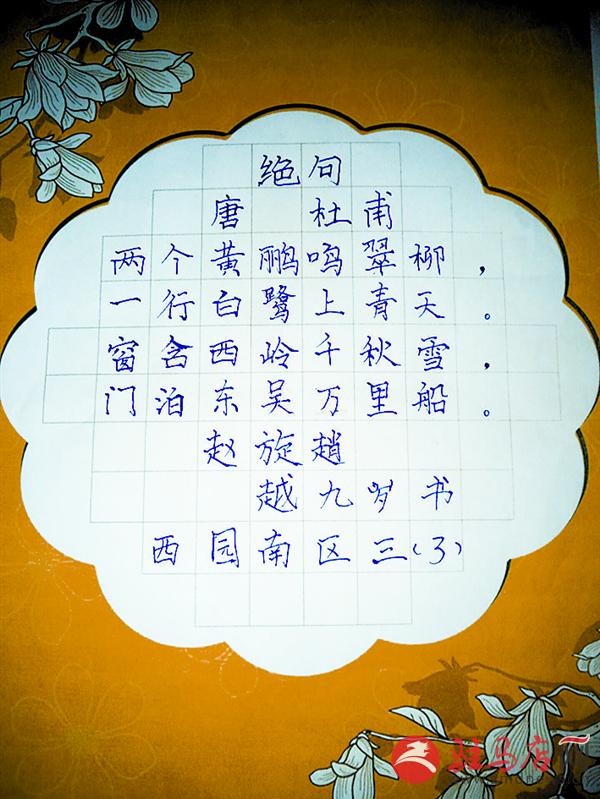 绝句
唐 杜甫
两个黄鹂鸣翠柳，
一行白鹭上青天。
窗含西岭千秋雪，
门泊东吴万里船。
赵旋趙
越九岁书
西园南区三(3)
驻马店